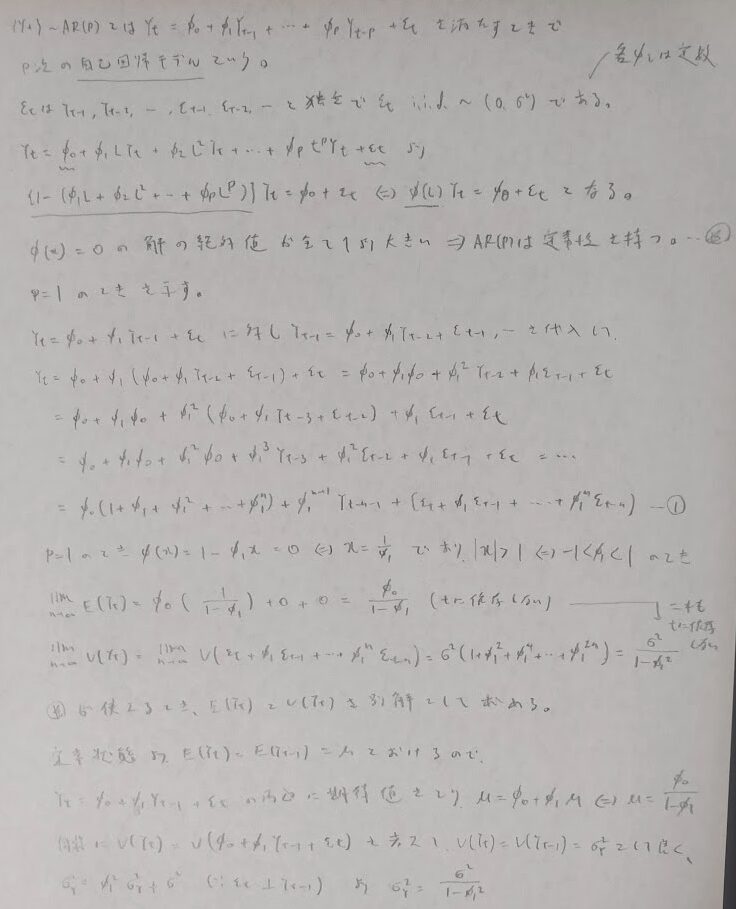 {Yt} ~ AR(P) とは Yt = φ0 + φ1Yt-1 + … + φpYt-p + εt を満たすときで
各φiは定数
P次の自己回帰モデルという。
εtは Yt-1, Yt-2, …, εt-1, εt-2, … と独立で εt i.i.d. ~ (0, σ²) である。
Yt = φ0 + φ1LYt + φ2L²Yt + … + φpLᵖYt + εt より
{1 - (φ1L + φ2L² + … + φpLᵖ)} Yt = φ0 + εt ⇔ φ(L)Yt = φ0 + εt となる。
φ(x) = 0 の解の絶対値が全て1より大きい ⇒ AR(P)は定常性を持つ。…
P=1 のときを示す。
Yt = φ0 + φ1Yt-1 + εt に対し Yt-1 = φ0 + φ1Yt-2 + εt-1, … を代入して、
Yt = φ0 + φ1(φ0 + φ1Yt-2 + εt-1) + εt = φ0 + φ1φ0 + φ1²Yt-2 + φ1εt-1 + εt
= φ0 + φ1φ0 + φ1²(φ0 + φ1Yt-3 + εt-2) + φ1εt-1 + εt
= φ0 + φ1φ0 + φ1²φ0 + φ1³Yt-3 + φ1²εt-2 + φ1εt-1 + εt = …
= φ0(1 + φ1 + φ1² + … + φ1ⁿ) + φ1ⁿ⁺¹Yt-n-1 + (εt + φ1εt-1 + … + φ1ⁿεt-n) …①
P=1 のとき φ(x) = 1 - φ1x = 0 ⇔ x = 1/φ1 であり |x| > 1 ⇔ -1 < φ1 < 1 のとき
lim n→∞ E(Yt) = φ0(1/(1-φ1)) + 0 + 0 = φ0/(1-φ1) (tに依存しない)
lim n→∞ V(Yt) = lim n→∞ V(εt + φ1εt-1 + … + φ1ⁿεt-n) = σ²(1 + φ1² + φ1⁴ + … + φ1²ⁿ) = σ²/(1-φ1²)
tに依存しない
が使えるとき、E(Yt) と V(Yt) を別解として求める。
定常状態より E(Yt) = E(Yt-1) = μ とおけるので、
Yt = φ0 + φ1Yt-1 + εt の両辺に期待値をとり μ = φ0 + φ1μ ⇔ μ = φ0/(1-φ1)
同様に V(Yt) = V(φ0 + φ1Yt-1 + εt) を考えて、V(Yt) = V(Yt-1) = σY² として良く、
σY² = φ1²σY² + σ² (∵ εt ⊥ Yt-1) より σY² = σ²/(1-φ1²)